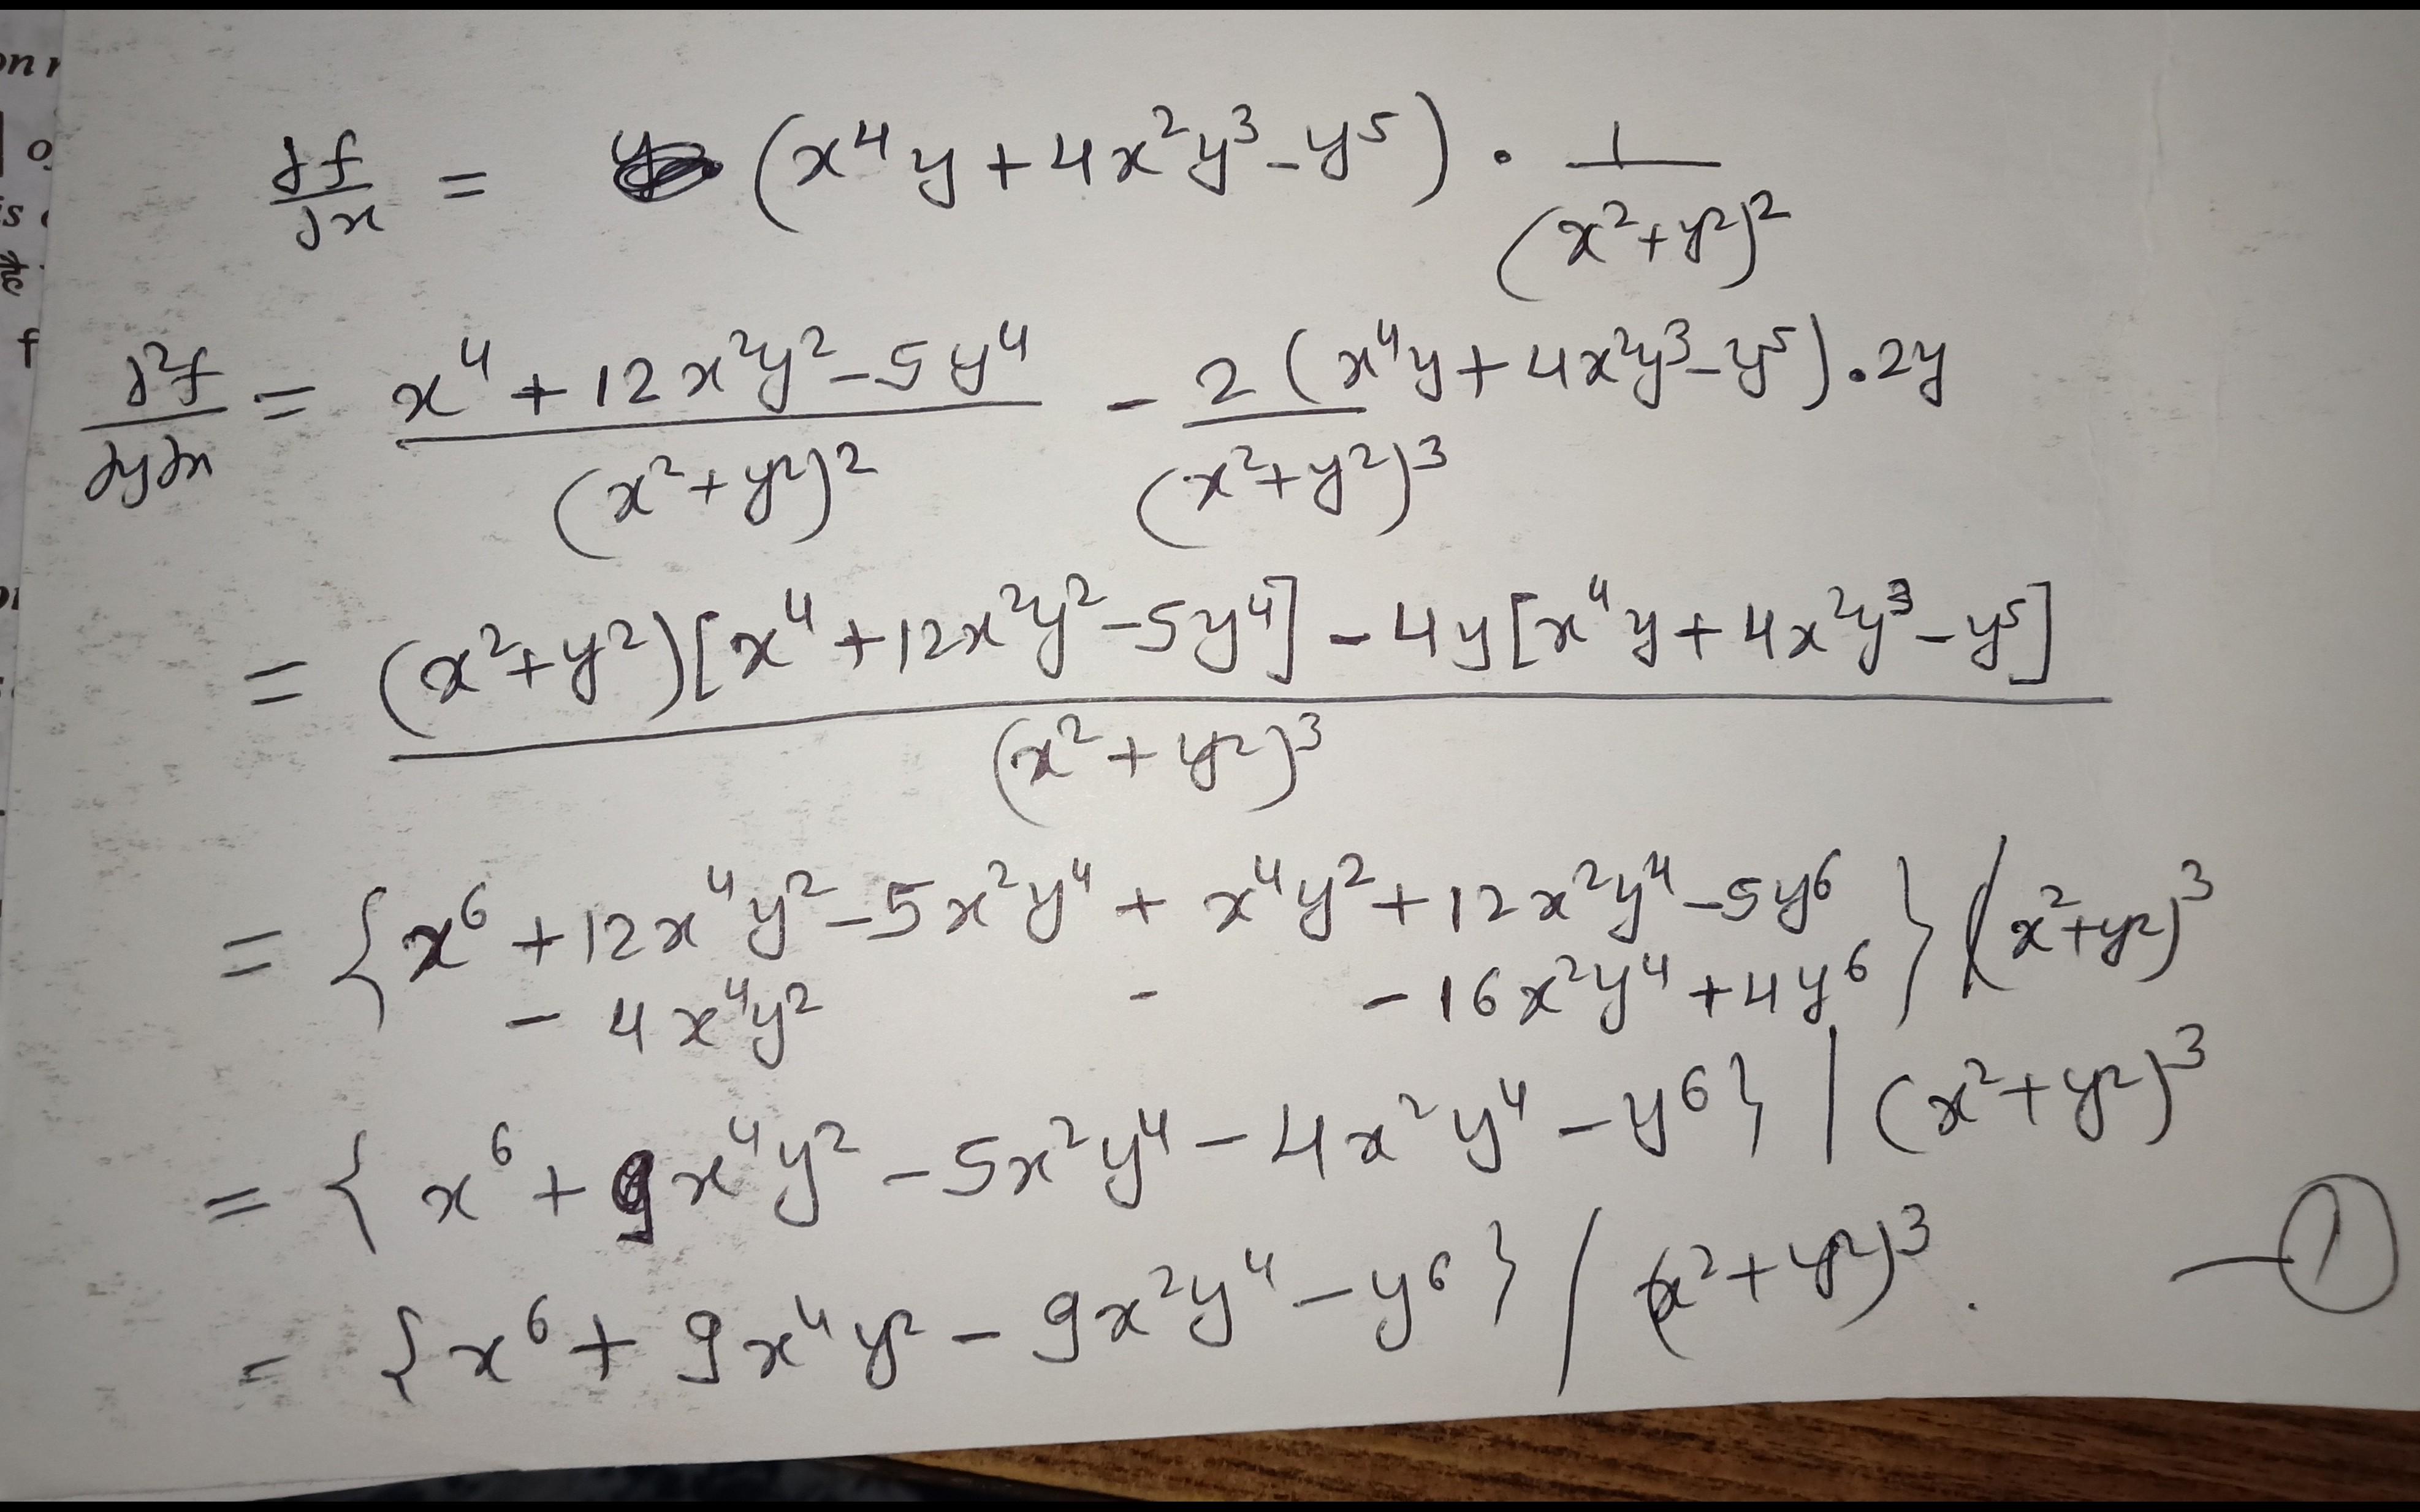 on
is
है
f
∂f/∂x = (x⁴y + 4x²y³ - y⁵) · 1/(x²+y²)²
∂²f/∂y∂x = (x⁴ + 12x²y² - 5y⁴)/(x²+y²)² - 2(x⁴y + 4x²y³ - y⁵)·2y/(x²+y²)³
= (x²+y²)[x⁴ + 12x²y² - 5y⁴] - 4y[x⁴y + 4x²y³ - y⁵]/(x²+y²)³
= {x⁶ + 12x⁴y² - 5x²y⁴ + x⁴y² + 12x²y⁴ - 5y⁶
- 4x⁴y² - - 16x²y⁴ + 4y⁶} / (x²+y²)³
= {x⁶ + 9x⁴y² - 5x²y⁴ - 4x²y⁴ - y⁶} | (x²+y²)³
= {x⁶ + 9x⁴y² - 9x²y⁴ - y⁶} / (x²+y²)³. — ①